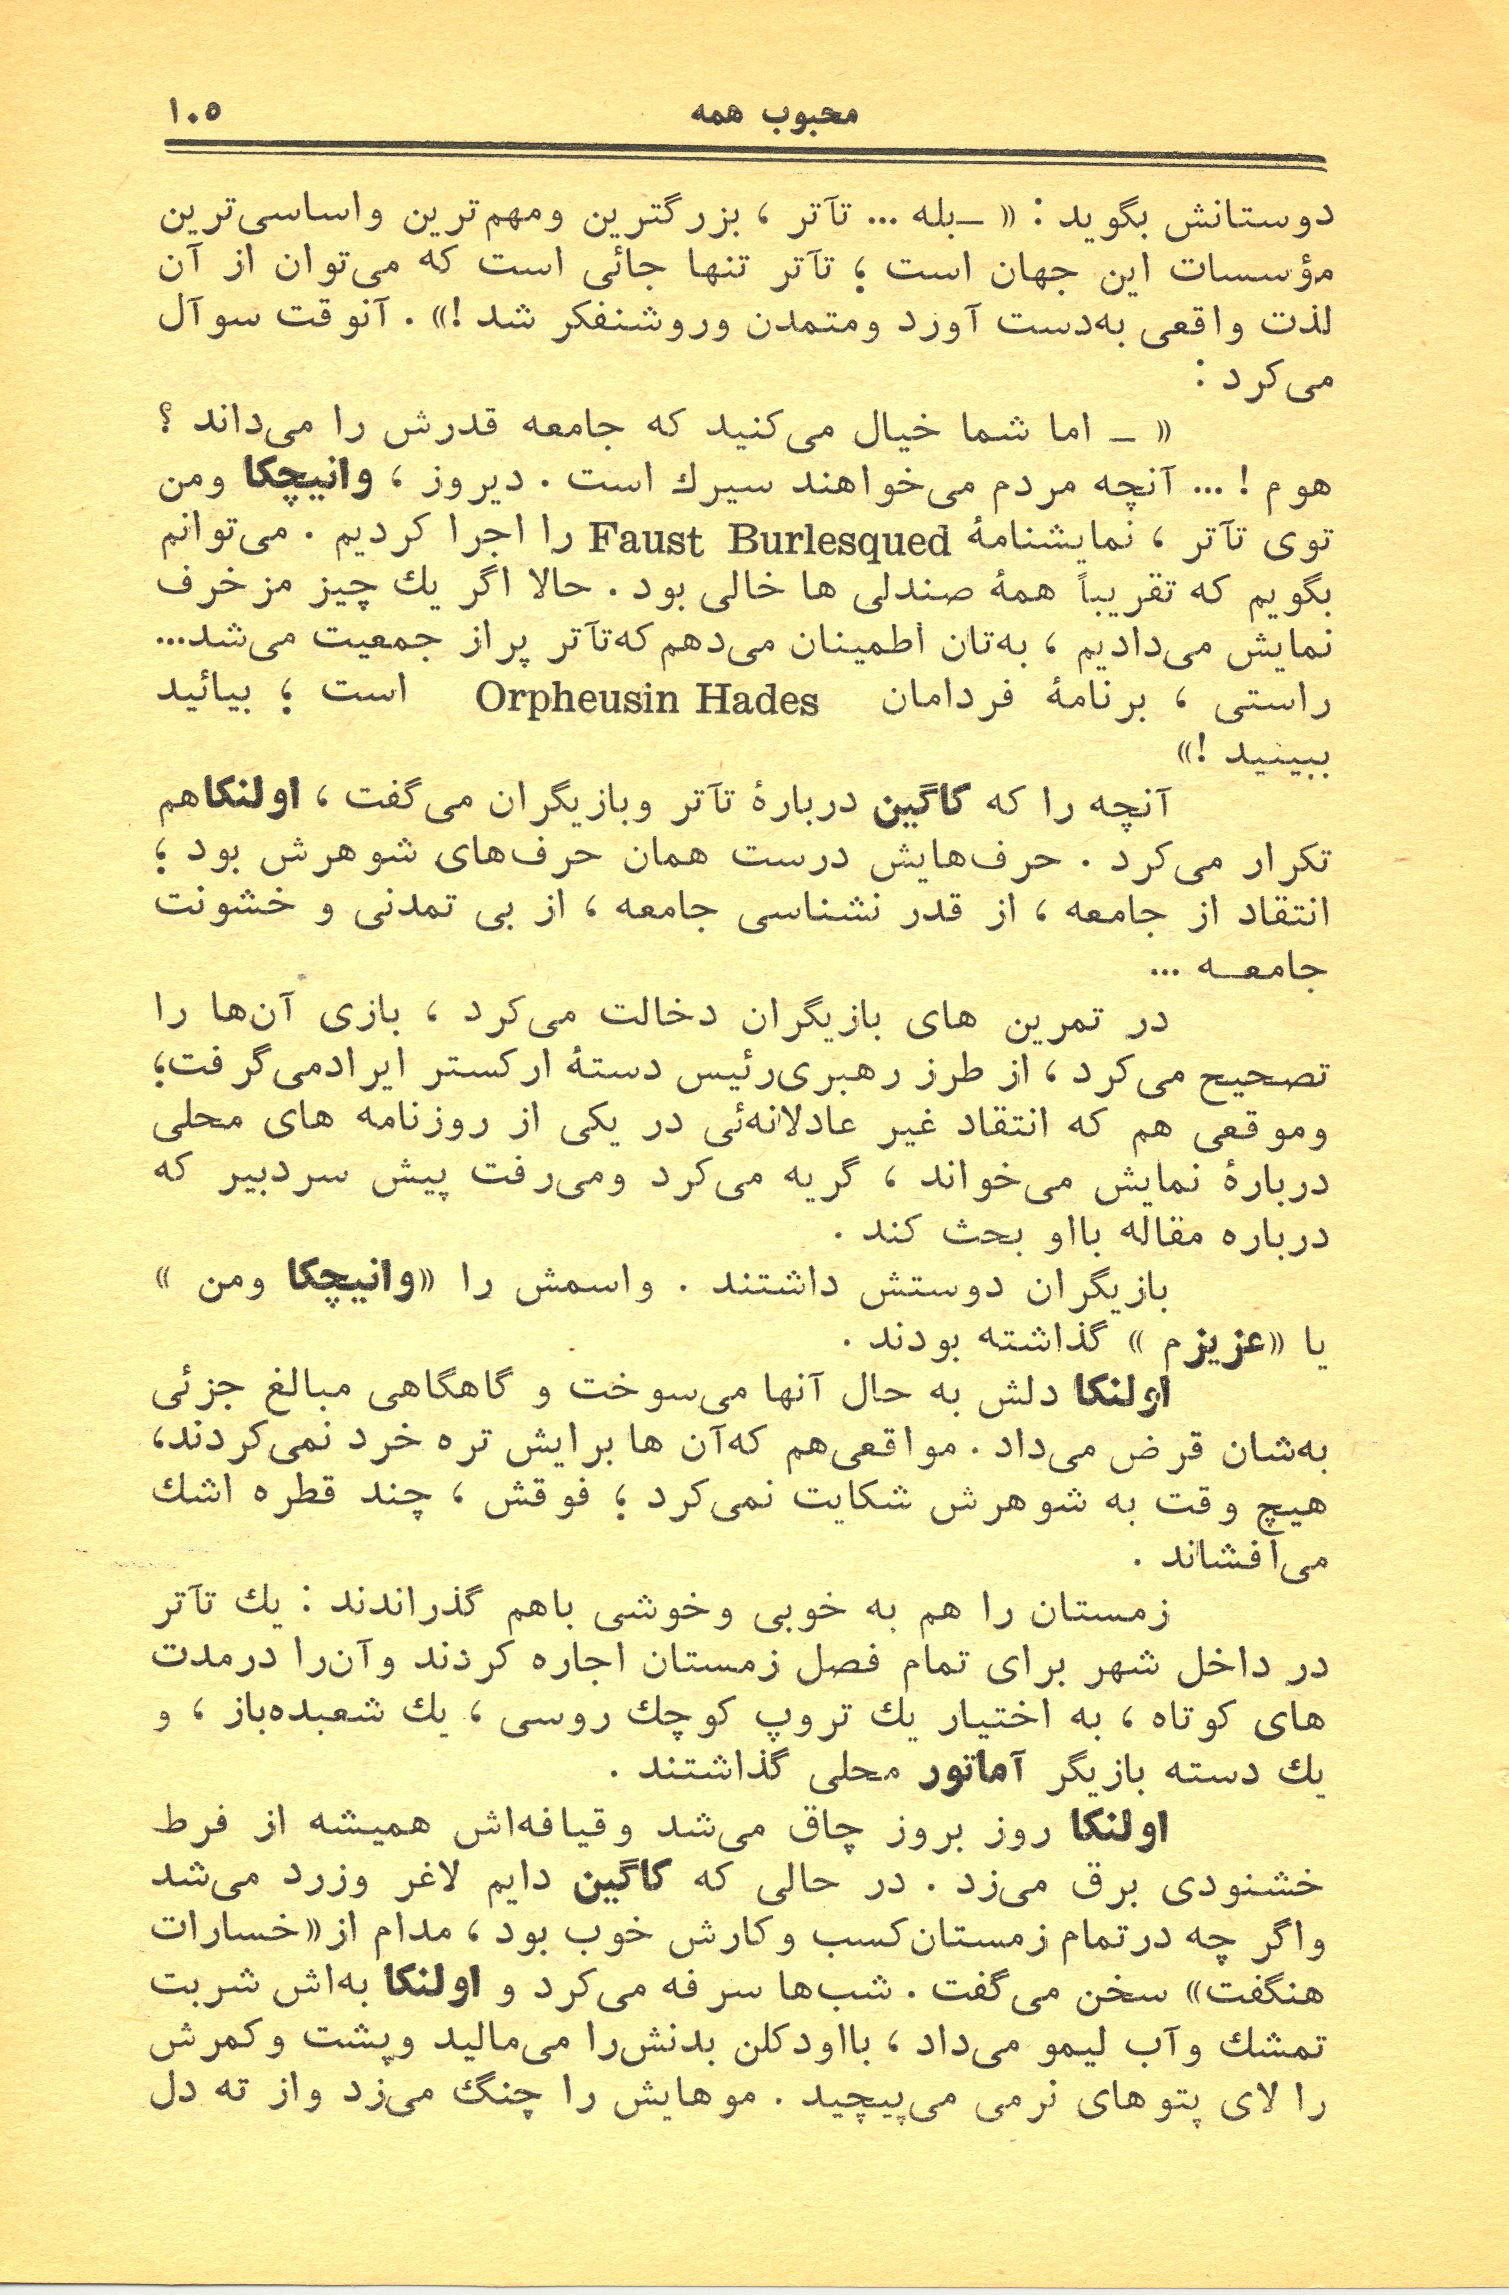 محبوب همه ۱۰۵
دوستانش بگوید : « ـ بله ... تآتر ، بزرگترین ومهم‌ترین واساسی‌ترین
مؤسسات این جهان است ؛ تآتر تنها جائی است که می‌توان از آن
لذت واقعی به‌دست آورد ومتمدن وروشنفکر شد !» . آنوقت سوآل
می‌کرد :
« ـ اما شما خیال می‌کنید که جامعه قدرش را می‌داند ؟
هوم ! ... آنچه مردم می‌خواهند سیرك است . دیروز ، وانیچکا ومن
توی تآتر ، نمایشنامهٔ Faust Burlesqued را اجرا کردیم . می‌توانم
بگویم که تقریباً همهٔ صندلی ها خالی بود . حالا اگر یك چیز مزخرف
نمایش می‌دادیم ، به‌تان اطمینان می‌دهم که‌تآتر پراز جمعیت می‌شد...
راستی ، برنامهٔ فردامان Orpheusin Hades است ؛ بیائید
ببینید !»
آنچه را که کاگین دربارهٔ تآتر وبازیگران می‌گفت ، اولنکاهم
تکرار می‌کرد . حرف‌هایش درست همان حرف‌های شوهرش بود ؛
انتقاد از جامعه ، از قدر نشناسی جامعه ، از بی تمدنی و خشونت
جامعـه ...
در تمرین های بازیگران دخالت می‌کرد ، بازی آن‌ها را
تصحیح می‌کرد ، از طرز رهبری‌رئیس دستهٔ ارکستر ایرادمی‌گرفت؛
وموقعی هم که انتقاد غیر عادلانه‌ئی در یکی از روزنامه های محلی
دربارهٔ نمایش می‌خواند ، گریه می‌کرد ومی‌رفت پیش سردبیر که
درباره مقاله بااو بحث کند .
بازیگران دوستش داشتند . واسمش را «وانیچکا ومن »
یا «عزیزم » گذاشته بودند .
اولنکا دلش به حال آنها می‌سوخت و گاهگاهی مبالغ جزئی
به‌شان قرض می‌داد . مواقعی‌هم که‌آن ها برایش تره خرد نمی‌کردند،
هیچ وقت به شوهرش شکایت نمی‌کرد ؛ فوقش ، چند قطره اشك
می‌افشاند .
زمستان را هم به خوبی وخوشی باهم گذراندند : یك تآتر
در داخل شهر برای تمام فصل زمستان اجاره کردند وآن‌را درمدت
های کوتاه ، به اختیار یك تروپ کوچك روسی ، یك شعبده‌باز ، و
یك دسته بازیگر آماتور محلی گذاشتند .
اولنکا روز بروز چاق می‌شد وقیافه‌اش همیشه از فرط
خشنودی برق می‌زد . در حالی که کاگین دایم لاغر وزرد می‌شد
واگر چه درتمام زمستان‌کسب وکارش خوب بود ، مدام از«خسارات
هنگفت» سخن می‌گفت . شب‌ها سرفه می‌کرد و اولنکا به‌اش شربت
تمشك وآب لیمو می‌داد ، بااودکلن بدنش‌را می‌مالید وپشت وکمرش
را لای پتوهای نرمی می‌پیچید . موهایش را چنگ می‌زد واز ته دل